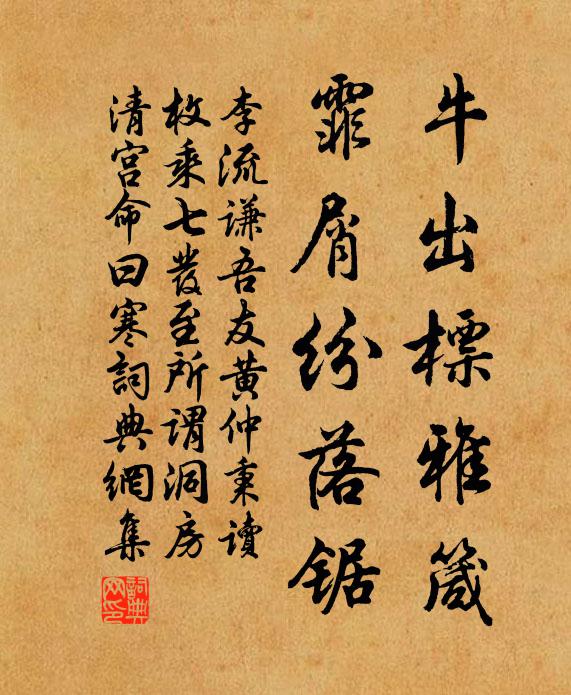 牛出標雅箴
霏屑紛落鋸
李流謙吾友黃仲秉讀
枚乘七發至所謂洞房
清宮命曰寒詞典網集
詞典
网印